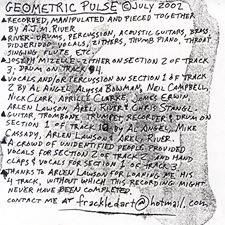 GEOMETRIC PULSE © JULY 2002
RECORDED, MANIPULATED AND PIECED TOGETHER
BY A.J.M. RIVER
RIVER - DRUMS, PERCUSSION, ACOUSTIC GUITARS, BRASS
DIDJERIDOO, VOCALS, ZITHERS, THUMB PIANO, THROAT
SINGING, FLUTE, ETC.
JOSEPH MIZELLE - ZITHER ON SECTION 2 OF TRACK
3, DRUM ON TRACK
VOCALS AND/OR PERCUSSION ON SECTION 1 OF TRACK
2 BY AL ANGEL, ALYSSA BOWMAN, NEIL CAMPBELL,
NICK CLARK, APRILLE CLARKE, JAMES ERWIN,
ARLEN LAWSON, AXEL RIVER & CHRIS STANGE
GUITAR, TROMBONE, TRUMPET, RECORDER & DRUM ON
SECTION 1 OF TRACK BY AL ANGEL, MIKE
CASSADY, ARLEN LAWSON & AXEL RIVER.
A CROWD OF UNIDENTIFIED PEOPLE PROVIDED
VOCALS FOR SECTION 2 OF TRACK 2 AND HAND
CLAPS & VOCALS FOR SECTION 1 OF TRACK 3
THANKS TO ARLEN LAWSON FOR LOANING ME HIS
4 TRACK, WITHOUT WHICH THIS RECORDING MIGHT
NEVER HAVE BEEN COMPLETED
CONTACT ME AT frackledart@hotmail.com